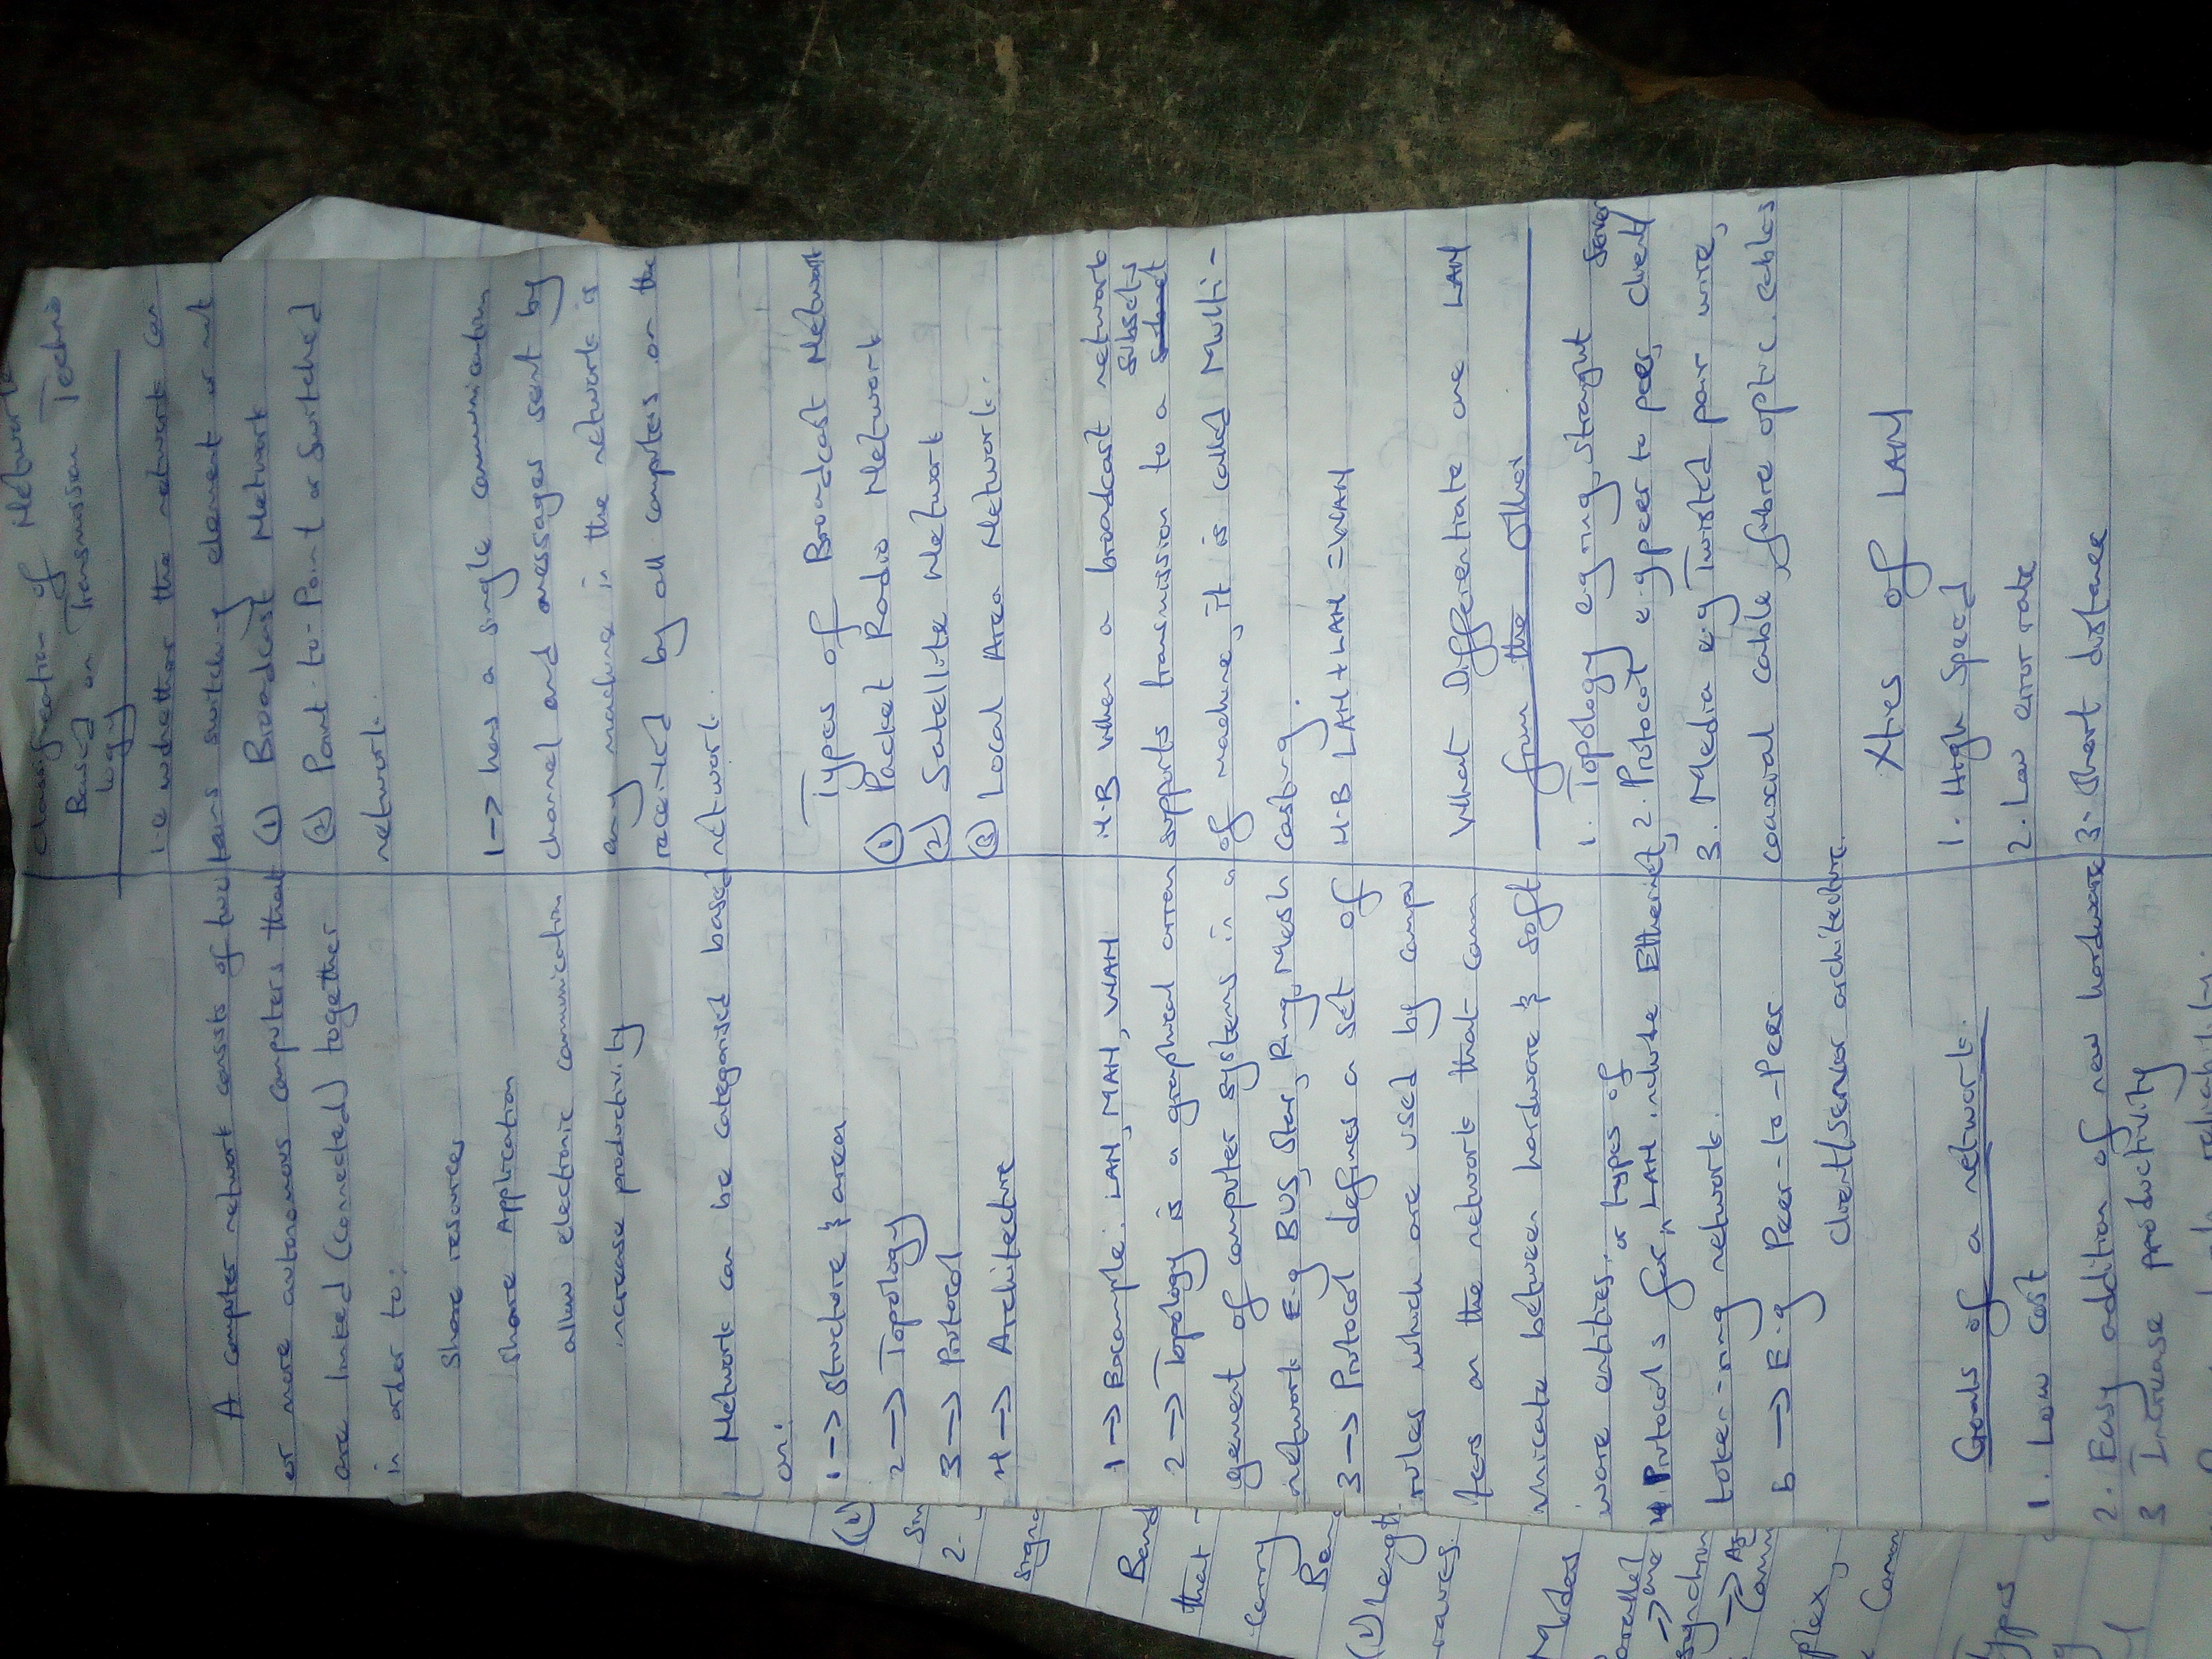 A computer network consists of two
or more autonomous computers that
are linked (connected) together
in order to:
Share resources
Share Application
allow electronic communication
increase productivity
Network can be categorised based
on:
1 -> Structure & area
2 -> Topology
3 -> Protocol
4 -> Architecture
1 -> Example. LAN, MAN, WAN
2 -> Topology is a graphical arran
gement of computer systems in a
network E.g BUS, Star, Ring, Mesh
3 -> Protocol defines a set of
rules which are used by compu
ters on the network that comm
unicate between hardware & soft
ware entities.
or types of
4. Protocols for LAN include Ethernet,
token-ring network.
b -> E.g Peer-to-Peer
Client/server architecture.
Goals of a network.
1. Low cost
2. Easy addition of new hardware
3 Increase productivity
reliability.
Classification of Network
Based on Transmission Techno
logy
i.e whether the network con
tains switching element or not
(1) Broadcast Network
(2) Point-to-Point or Switched
network.
1 -> has a single communication
channel and messages sent by
any machine in the network is
received by all computers on the
network.
Types of Broadcast Network
(1) Packet Radio Network
(2) Satellite Network
(3) Local Area Network.
N.B When a broadcast network
subsets
supports transmission to a
of machine, it is called Multi-
casting.
N.B LAN + LAN = WAN
What Differentiate one LAN
from the Other
1. Topology e.g ring, straight
Server
2. Protocol e.g peer to peer, client/
3. Media e.g Twisted pair wire,
coaxial cable, fubre optic cables
Xtics of LAN
1. High Speed
2. Low error rate
3. Short distance
(1)
2.
Band
that
carry
(1) Length
waves.
Modes
Types